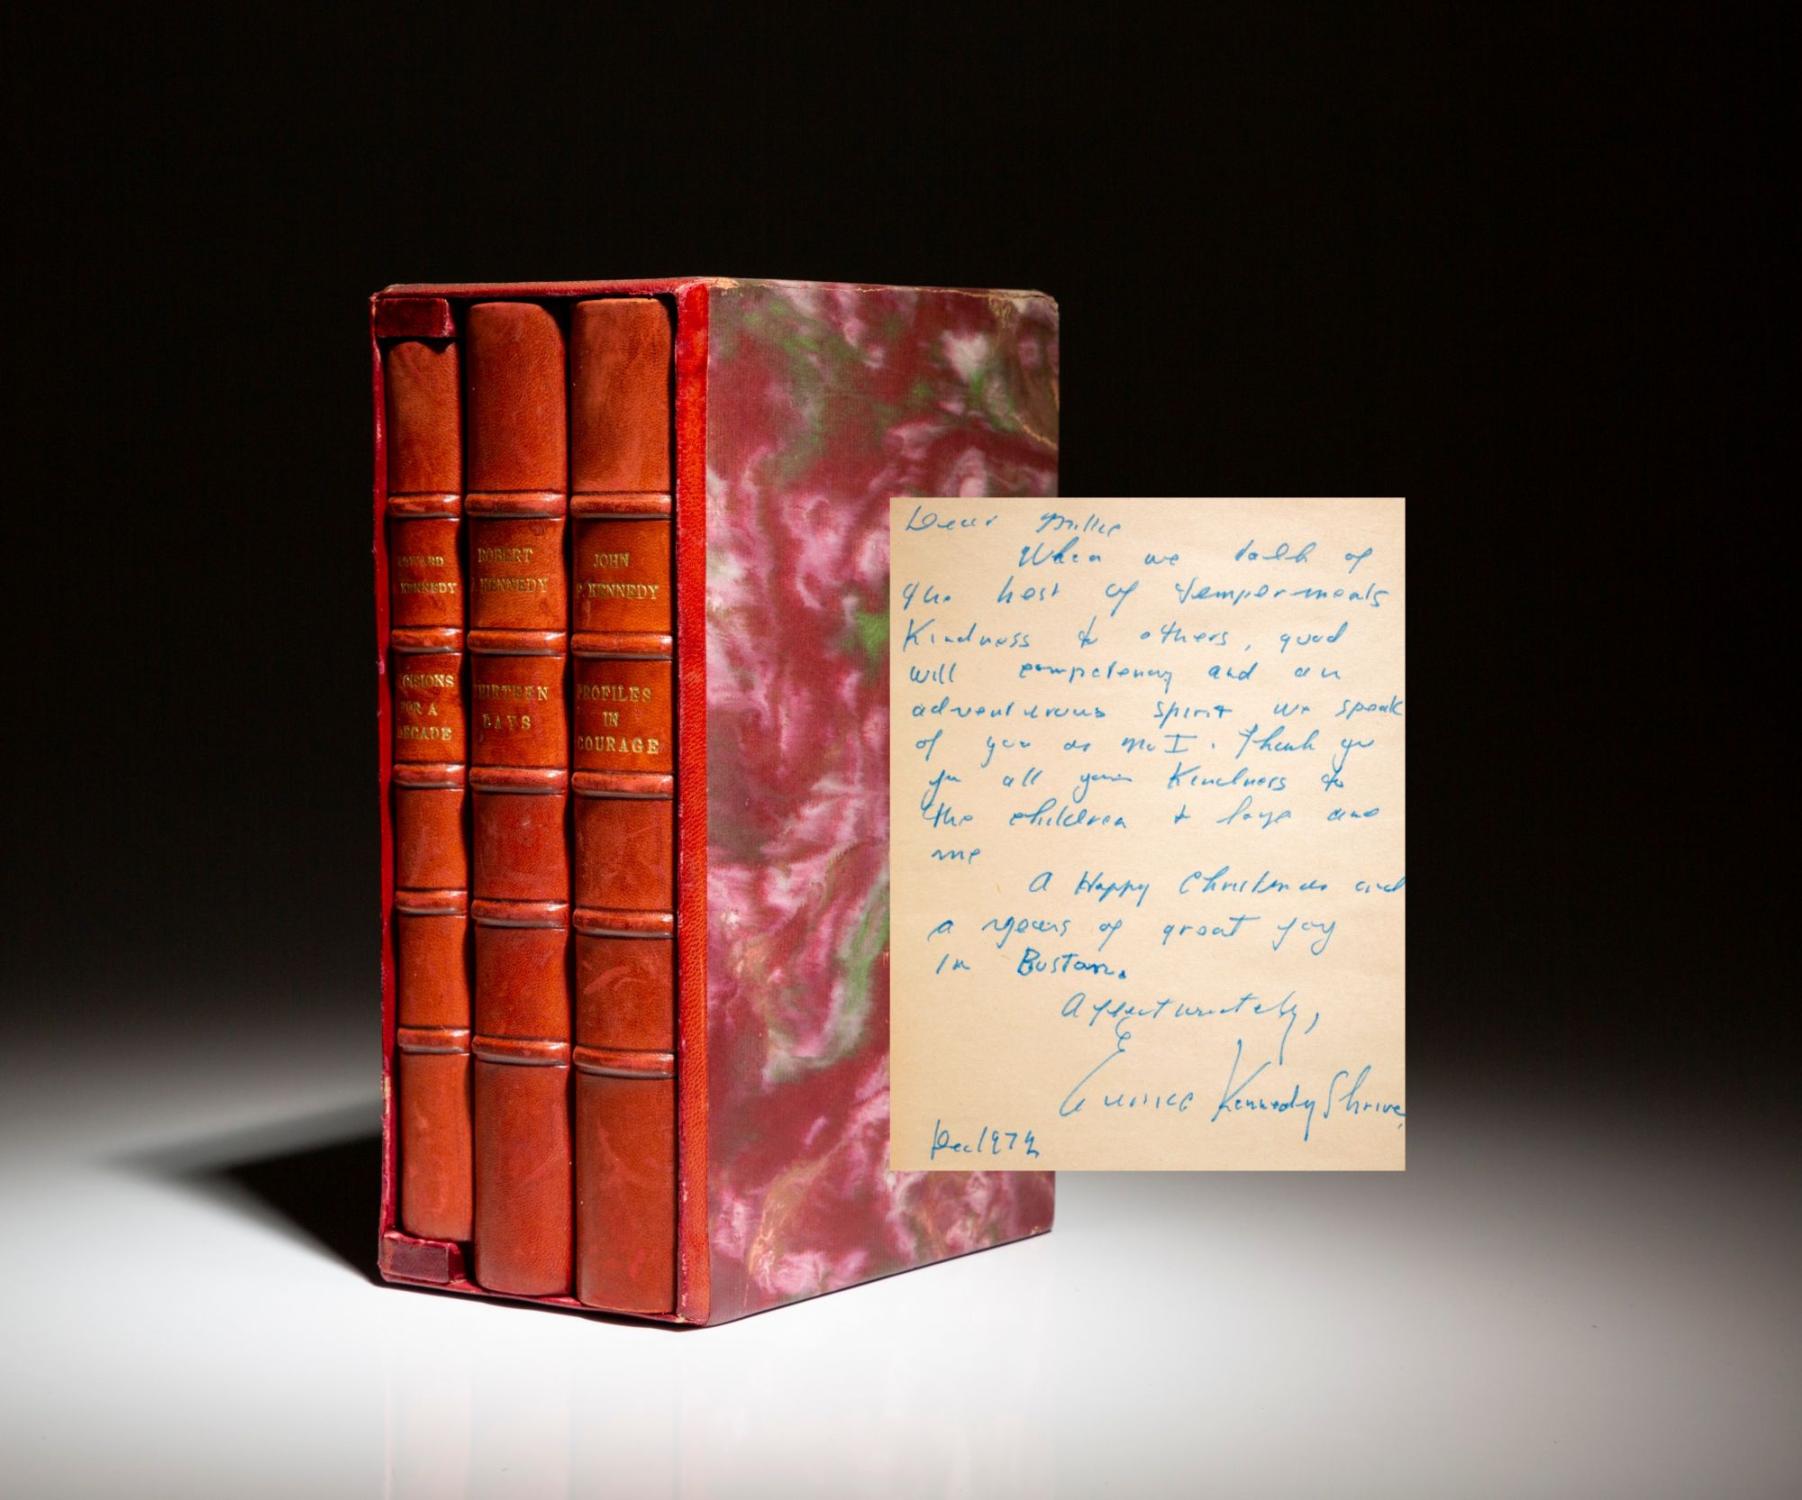 EDWARD
KENNEDY
DECISIONS
FOR A
DECADE
ROBERT
F. KENNEDY
THIRTEEN
DAYS
JOHN
F. KENNEDY
PROFILES
IN
COURAGE
Dear Millie
When we talk of
the best of temperments
Kindness to others, good
will competency and an
adventurous spirit we speak
of you as No I. Thank you
for all your Kindness to
the children + and
me
A Happy Christmas and
a years of great joy
In Boston.
Affectionately,
Eunice Kennedy Shriver
Dec 1972